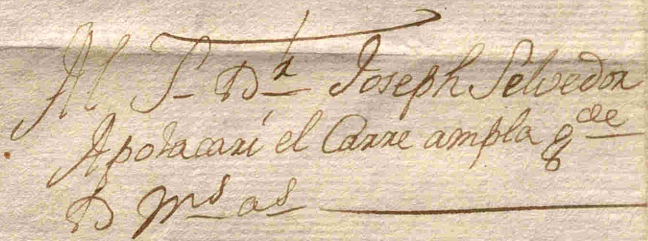 Al Sr Dn Joseph Selvedor
Apotacari el Carre ampla gde
D ms as